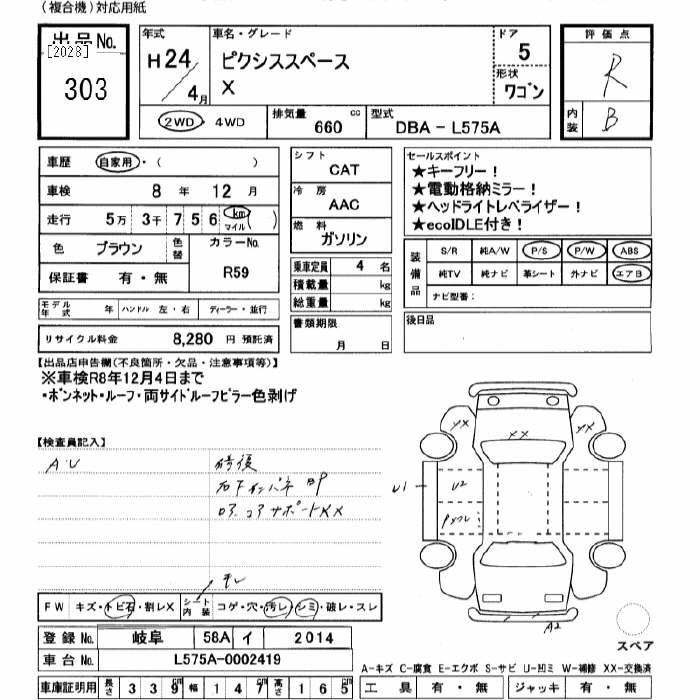 (複合機)対応用紙
出品No.
[2028]
303
年式
H24
4月
車名・グレード
ピクシススペース
X
ドア
5
形状
ワゴン
評価点
R
内装
B
2WD・4WD
排気量
660 cc
型式
DBA - L575A
車歴 自家用・( )
車検 8年 12月
走行 5万 3千 7 5 6 km マイル ( )
色 ブラウン 色替
カラーNo.
R59
保証書 有・無
モデル年式 年 ハンドル 左・右 ディーラー・並行
リサイクル料金 8,280 円 預託済
シフト
CAT
冷房
AAC
燃料
ガソリン
乗車定員 4 名
積載量 kg
総重量 kg
書類期限
月 日
セールスポイント
★キーフリー!
★電動格納ミラー!
★ヘッドライトレベライザー!
★ecoIDLE付き!
装備品
S/R 純A/W P/S P/W ABS
純TV 純ナビ 革シート 外ナビ エアB
ナビ型番:
後日品
【出品店申告欄(不良箇所・欠品・注意事項等)】
※車検R8年12月4日まで
・ボンネット・ルーフ・両サイドルーフピラー色剥げ
【検査員記入】
A・U
修復
右下インパネ BP
コアサポートXX
XX
XX
XX
U1
U2
A2
スペア
FW キズ・トビ石・割レX
シート内装 コゲ・穴・汚レ・シミ・破レ・スレ
登録No. 岐阜 58A イ 2014
車台No. L575A-0002419
車庫証明用 長さ 3 3 9 cm 幅 1 4 7 cm 高さ 1 6 5 cm
A-キズ C-腐食 E-エクボ S-サビ U-凹ミ W-補修 XX-交換済
工具 有・無 ジャッキ 有・無